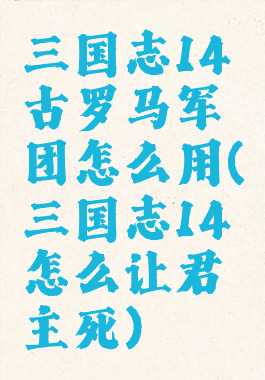 三国志14
古罗马军
团怎么用(
三国志14
怎么让君
主死)